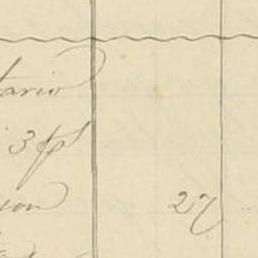 tario
3 fps
ion 27